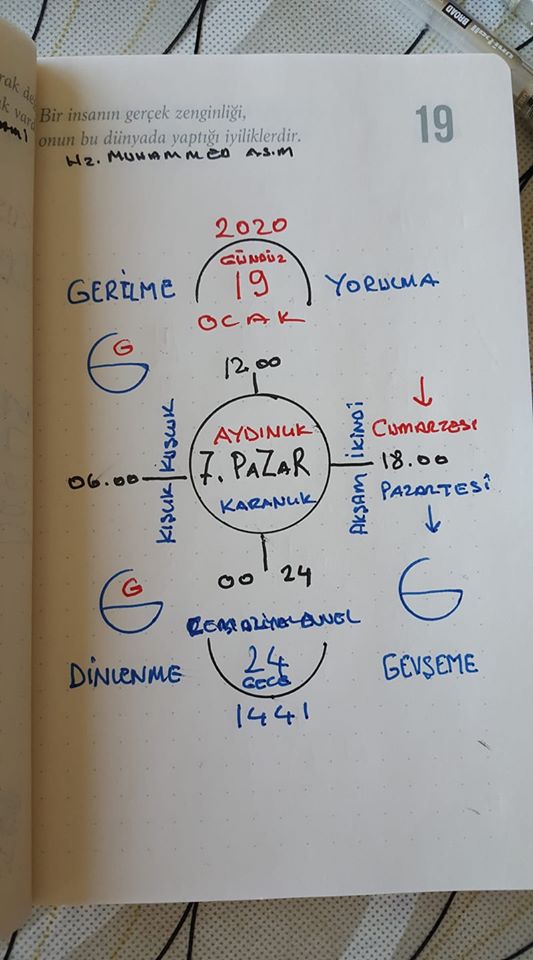 Bir insanın gerçek zenginliği,
onun bu dünyada yaptığı iyiliklerdir.
19
Hz. MUHAMMED A.S.M
2020
GÜNDÜZ
GERİLME
19
YORULMA
OCAK
G
12.00
KUŞLUK
İKİNDİ
CUMARTESİ
AYDINLIK
06.00
7. PAZAR
18.00
KARANLIK
AKŞAM
PAZARTESİ
00 24
G
24
GECE
DİNLENME
GEVŞEME
1441